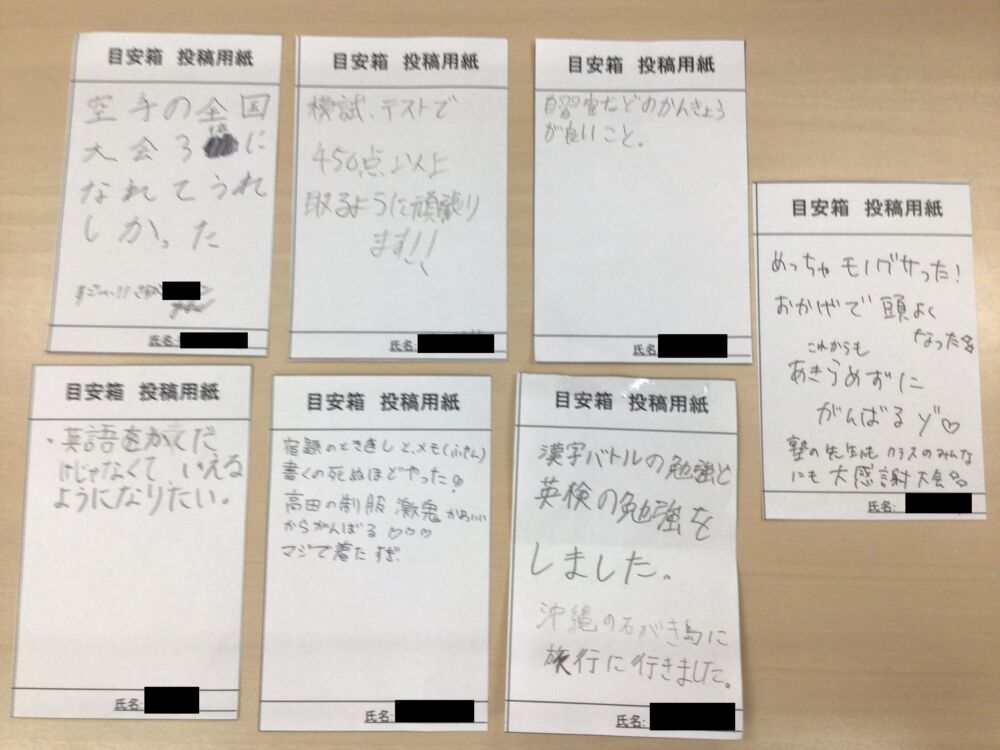 目安箱 投稿用紙
空手の全国
大会3位に
なれてうれ
しかった
すごーい!!
氏名:
目安箱 投稿用紙
模試、テストで
450点以上
取るように頑張り
ます!!
氏名:
目安箱 投稿用紙
自習室などのかんきょう
が良いこと。
氏名
目安箱 投稿用紙
めっちゃモノグサった!
おかげで頭よく
なった
これからも
あきらめずに
がんばるゾ♡
塾の先生もクラスのみんな
にも大感謝大会
氏名:
目安箱 投稿用紙
・英語をかくだ
けじゃなくていえる
ようになりたい。
氏名:
目安箱 投稿用紙
宿題のときなしと、メモ(ふせん)
書くの死ぬほどやった!
高田の制服 激鬼かわいい
からがんばる♡♡♡
マジで着たすぎ.
氏名:
目安箱 投稿用紙
漢字バトルの勉強と
英検の勉強を
しました。
沖縄の石がき島に
旅行に行きました。
氏名: